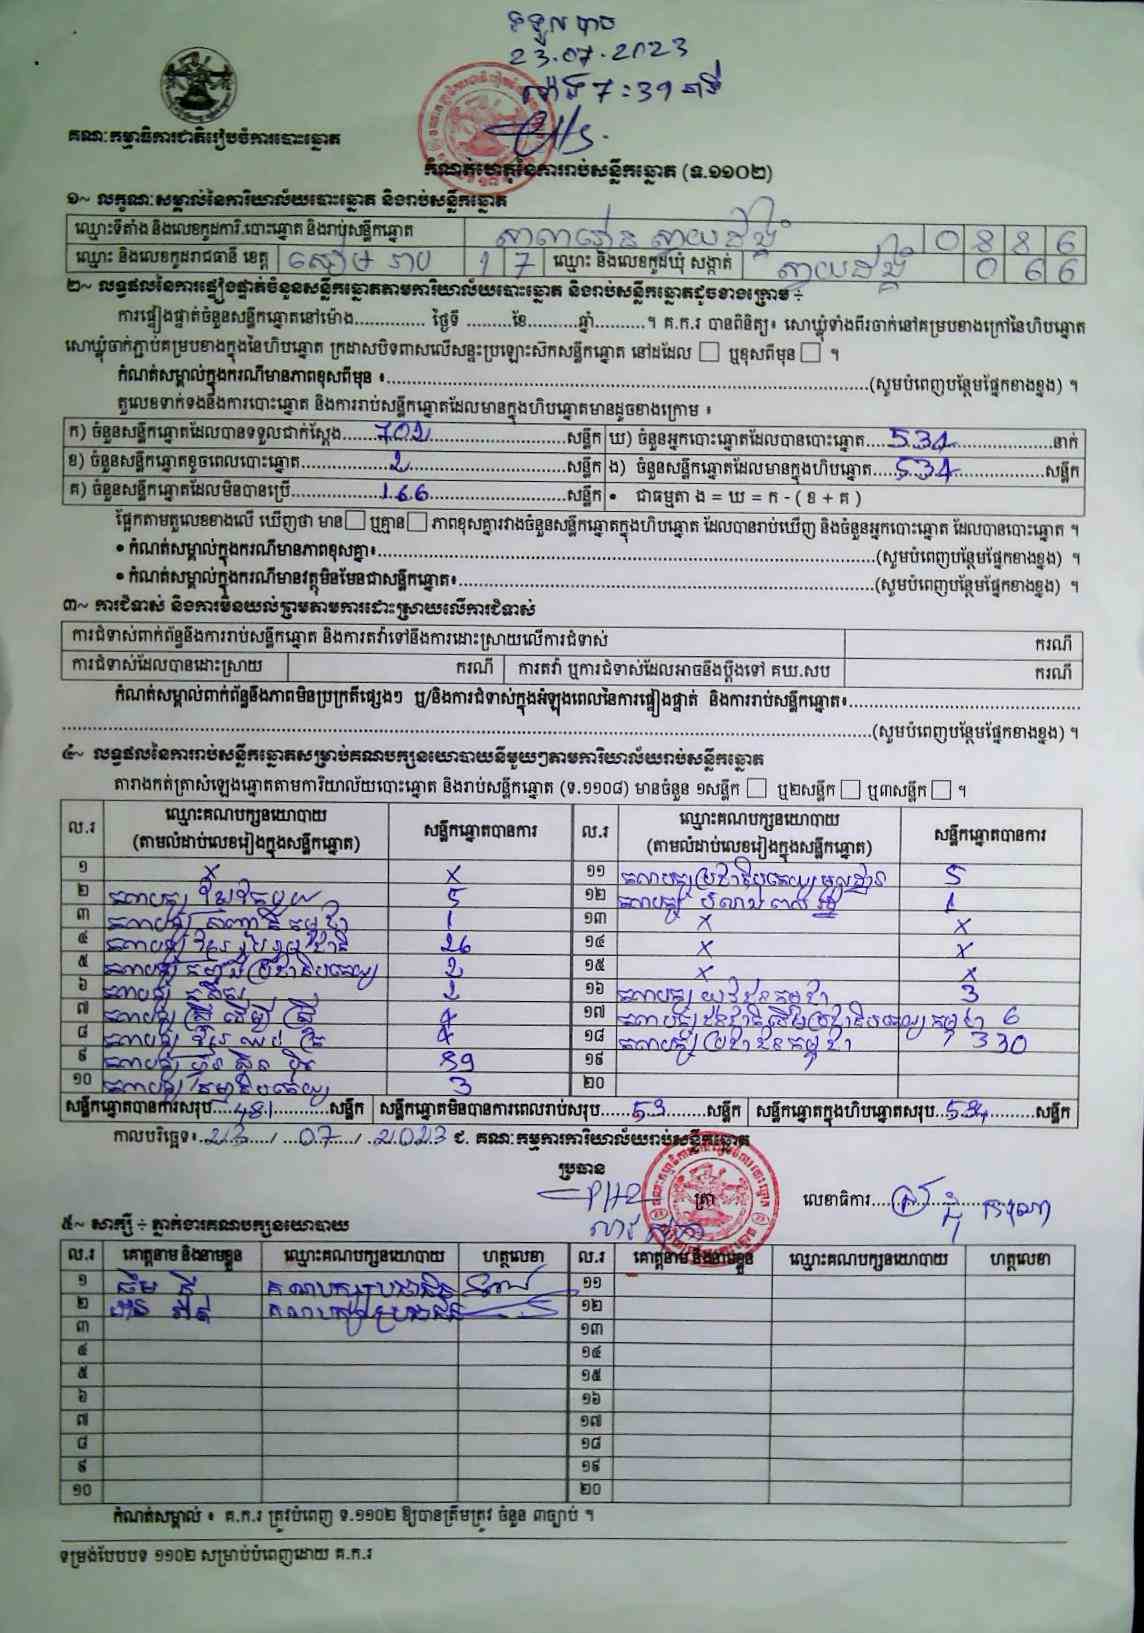 ទទួលបាន
23.07.2023
ម៉ោង 7:39 នាទី
គណៈកម្មាធិការជាតិរៀបចំការបោះឆ្នោត
កំណត់ហេតុនៃការរាប់សន្លឹកឆ្នោត (ទ.១១០២)
១~ លក្ខណៈសម្គាល់នៃការិយាល័យបោះឆ្នោត និងរាប់សន្លឹកឆ្នោត
ឈ្មោះទីតាំង និងលេខកូដការិ.បោះឆ្នោត និងរាប់សន្លឹកឆ្នោត 0886
ឈ្មោះ និងលេខកូដរាជធានី ខេត្ត សៀមរាប 17 ឈ្មោះ និងលេខកូដឃុំ សង្កាត់ 066
២~ លទ្ធផលនៃការផ្ទៀងផ្ទាត់ចំនួនសន្លឹកឆ្នោតតាមការិយាល័យបោះឆ្នោត និងរាប់សន្លឹកឆ្នោតដូចខាងក្រោម ÷
ការផ្ទៀងផ្ទាត់ចំនួនសន្លឹកឆ្នោតនៅម៉ោង............. ថ្ងៃទី .........ខែ..........ឆ្នាំ..........។ គ.ក.រ បានពិនិត្យ៖ សោឃ្លុំទាំងពីរចាក់នៅគម្របខាងក្រៅនៃហិបឆ្នោត
សោឃ្លុំចាក់ភ្ជាប់គម្របខាងក្នុងនៃហិបឆ្នោត ក្រដាសបិទពាសលើសន្ទះប្រឡោះសិកសន្លឹកឆ្នោត នៅដដែល □ ឬខុសពីមុន □ ។
កំណត់សម្គាល់ក្នុងករណីមានភាពខុសពីមុន ៖..........(សូមបំពេញបន្ថែមផ្នែកខាងខ្នង) ។
តួលេខទាក់ទងនឹងការបោះឆ្នោត និងការរាប់សន្លឹកឆ្នោតដែលមានក្នុងហិបឆ្នោតមានដូចខាងក្រោម ៖
ក) ចំនួនសន្លឹកឆ្នោតដែលបានទទួលជាក់ស្តែង.....702.....សន្លឹក ឃ) ចំនួនអ្នកបោះឆ្នោតដែលបានបោះឆ្នោត....534....នាក់
ខ) ចំនួនសន្លឹកឆ្នោតខូចពេលបោះឆ្នោត.....2.....សន្លឹក ង) ចំនួនសន្លឹកឆ្នោតដែលមានក្នុងហិបឆ្នោត....534....សន្លឹក
គ) ចំនួនសន្លឹកឆ្នោតដែលមិនបានប្រើ.....166.....សន្លឹក • ជាធម្មតា ង = ឃ = ក - ( ខ + គ )
ផ្អែកតាមតួលេខខាងលើ ឃើញថា មាន □ ឬគ្មាន □ ភាពខុសគ្នារវាងចំនួនសន្លឹកឆ្នោតក្នុងហិបឆ្នោត ដែលបានរាប់ឃើញ និងចំនួនអ្នកបោះឆ្នោត ដែលបានបោះឆ្នោត ។
• កំណត់សម្គាល់ក្នុងករណីមានភាពខុសគ្នា៖..........(សូមបំពេញបន្ថែមផ្នែកខាងខ្នង) ។
• កំណត់សម្គាល់ក្នុងករណីមានវត្ថុមិនមែនជាសន្លឹកឆ្នោត៖..........(សូមបំពេញបន្ថែមផ្នែកខាងខ្នង) ។
៣~ ការជំទាស់ និងការមិនយល់ព្រមតាមការដោះស្រាយលើការជំទាស់
ការជំទាស់ពាក់ព័ន្ធនឹងការរាប់សន្លឹកឆ្នោត និងការតវ៉ាទៅនឹងការដោះស្រាយលើការជំទាស់ ករណី
ការជំទាស់ដែលបានដោះស្រាយ ករណី ការតវ៉ា ឬការជំទាស់ដែលអាចនឹងប្តឹងទៅ គឃ.សប ករណី
កំណត់សម្គាល់ពាក់ព័ន្ធនឹងភាពមិនប្រក្រតីផ្សេងៗ ឬ/និងការជំទាស់ក្នុងអំឡុងពេលនៃការផ្ទៀងផ្ទាត់ និងការរាប់សន្លឹកឆ្នោត៖..........
..........(សូមបំពេញបន្ថែមផ្នែកខាងខ្នង) ។
៤~ លទ្ធផលនៃការរាប់សន្លឹកឆ្នោតសម្រាប់គណបក្សនយោបាយនីមួយៗតាមការិយាល័យរាប់សន្លឹកឆ្នោត
តារាងកត់ត្រាសំឡេងឆ្នោតតាមការិយាល័យបោះឆ្នោត និងរាប់សន្លឹកឆ្នោត (ទ.១១០៨) មានចំនួន ១សន្លឹក □ ឬ២សន្លឹក □ ឬ៣សន្លឹក □ ។
ល.រ ឈ្មោះគណបក្សនយោបាយ (តាមលំដាប់លេខរៀងក្នុងសន្លឹកឆ្នោត) សន្លឹកឆ្នោតបានការ ល.រ ឈ្មោះគណបក្សនយោបាយ (តាមលំដាប់លេខរៀងក្នុងសន្លឹកឆ្នោត) សន្លឹកឆ្នោតបានការ
១ x x ១១ គណបក្សប្រជាធិបតេយ្យមូលដ្ឋាន 5
២ គណបក្ស 5 ១២ គណបក្ស 1
៣ គណបក្ស 1 ១៣ x x
៤ គណបក្ស 26 ១៤ x x
៥ គណបក្ស ប្រជាធិបតេយ្យ 2 ១៥ x x
៦ គណបក្ស កសិករ 2 ១៦ គណបក្ស យុវជនកម្ពុជា 3
៧ គណបក្ស ស្ត្រី ដើម្បី ស្ត្រី 4 ១៧ គណបក្សជនជាតិដើមប្រជាធិបតេយ្យកម្ពុជា 6
៨ គណបក្ស 4 ១៨ គណបក្សប្រជាជនកម្ពុជា 330
៩ គណបក្ស ហ៊្វុនស៊ិនប៉ិច 89 ១៩
១០ គណបក្ស ធម្មាធិបតេយ្យ 3 ២០
សន្លឹកឆ្នោតបានការសរុប...481...សន្លឹក សន្លឹកឆ្នោតមិនបានការពេលរាប់សរុប...53...សន្លឹក សន្លឹកឆ្នោតក្នុងហិបឆ្នោតសរុប...534...សន្លឹក
កាលបរិច្ឆេទ៖ 23 / 07 / 2023 ជ. គណៈកម្មការការិយាល័យរាប់សន្លឹកឆ្នោត
ប្រធាន ត្រា លេខាធិការ
៥~ សាក្សី ÷ ភ្នាក់ងារគណបក្សនយោបាយ
ល.រ គោត្តនាម និងនាមខ្លួន ឈ្មោះគណបក្សនយោបាយ ហត្ថលេខា ល.រ គោត្តនាម និងនាមខ្លួន ឈ្មោះគណបក្សនយោបាយ ហត្ថលេខា
១ គណបក្សប្រជាជន ១១
២ គណបក្សប្រជាជន ១២
៣ ១៣
៤ ១៤
៥ ១៥
៦ ១៦
៧ ១៧
៨ ១៨
៩ ១៩
១០ ២០
កំណត់សម្គាល់ ៖ គ.ក.រ ត្រូវបំពេញ ទ.១១០២ ឱ្យបានត្រឹមត្រូវ ចំនួន ៣ច្បាប់ ។
ទម្រង់បែបបទ ១១០២ សម្រាប់បំពេញដោយ គ.ក.រ